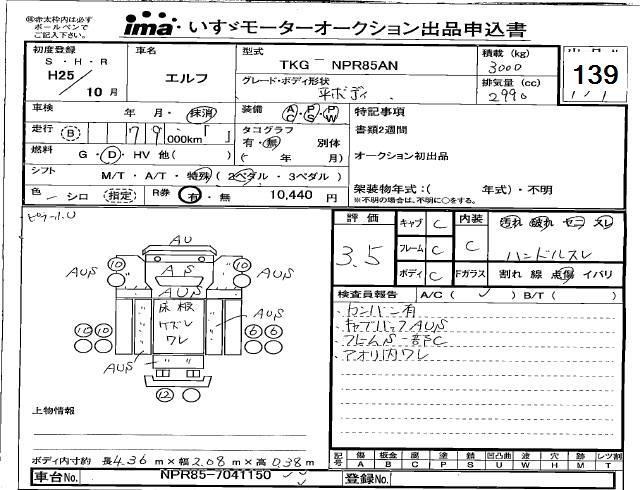 ㊟赤太枠内は必ず
ボールペンで
ご記入下さい。
ima いすゞモーターオークション出品申込書
初度登録
S・H・R
H25 / 10月
車名
エルフ
型式
TKG－NPR85AN
グレード・ボディ形状
平ボディ
積載 (kg)
3000
排気量 (cc)
2990
139
車検 年 月・抹消
装備 AC・PS・PW
特記事項
走行 B 79,000km
タコグラフ
有・無 別体
( 年 月)
書類2週間
燃料 G・D・HV 他( )
オークション初出品
シフト M/T・A/T・特殊 ( 2ペダル・3ペダル )
色 シロ (指定)
R券 有・無 10,440円
架装物年式:( 年式)・不明
※不明の場合は、不明に○をする。
評価
3.5
キャブ C
フレーム C
ボディ C
内装
C
Fガラス
汚れ 破れ セニ スレ
ハンドルスレ
割れ 線 点傷 イバリ
検査員報告 A/C ( ✓ ) B/T ( )
カンバン有
キャブバックAUS
フレームS一部C
アオリ内ワレ
AU
10 10
AUS AS AUS
AUS
床板
ケズレ
ワレ
12 12 6 6
AUS
AUS
12
上物情報
ボディ内寸約 長4.36m×幅2.08m×高0.38m
車台No. NPR85-7041150
登録No.
記号 傷 A 板金 B 腐 C 塗 P 錆 S 凹凸曲 U 波 W 穴 H 跡 M レツ割 T